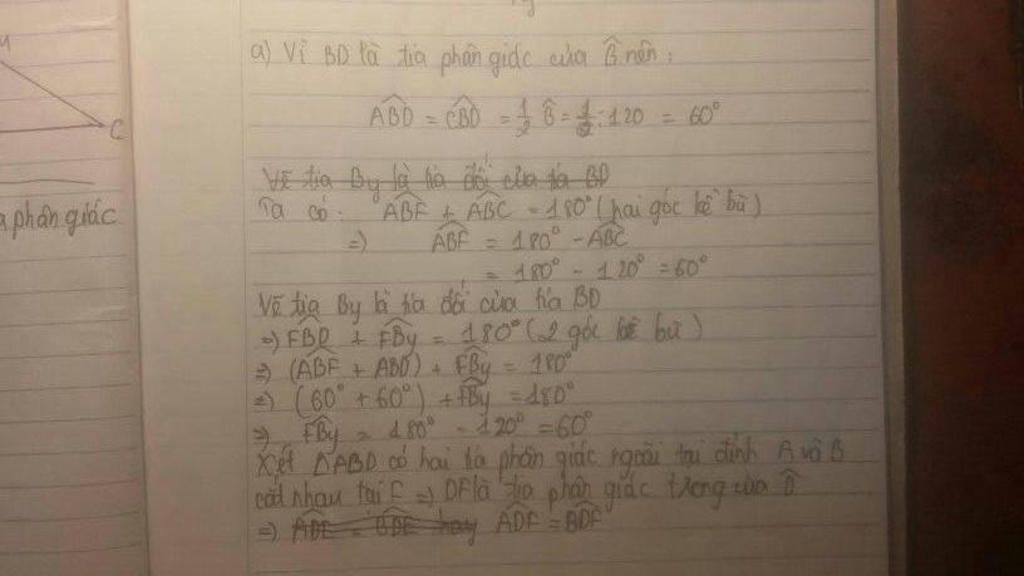 C
a phân giác
a) Vì BD là tia phân giác của B̂ nên:
ABD̂ = CBD̂ = 1/2 B̂ = 1/2 : 120 = 60°
Vẽ tia By là tia đối của tia BD
Ta có: ABF̂ + ABĈ = 180° (hai góc kề bù)
=) ABF̂ = 180° - ABĈ
= 180° - 120° = 60°
Vẽ tia By là tia đối của tia BD
=) FBD̂ + FBŷ = 180° (2 góc kề bù)
=) (ABF̂ + ABD̂) + FBŷ = 180°
=) (60° + 60°) + FBŷ = 180°
=) FBŷ = 180° - 120° = 60°
Xét ΔABD có hai tia phân giác ngoài tại đỉnh A và B
cắt nhau tại F => DF là tia phân giác trong của D̂
=) ADF̂ = BDF̂